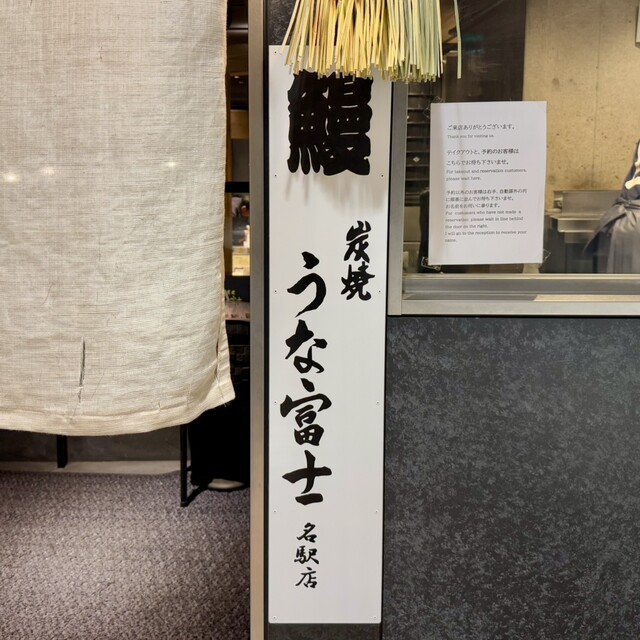 鰻
炭焼
うな富士
名駅店
ご来店ありがとうございます。
Thank you for visiting us.
テイクアウトと、予約のお客様は
こちらでお待ち下さいませ。
For takeout and reservation customers,
please wait here.
予約以外のお客様は右手、自動扉外の列
に順番に並んでお待ち下さいませ。
お名前をお伺いに参ります。
For customers who have not made a
reservation, please wait in line behind
the door on the right.
I will go to the reception to receive your
name.